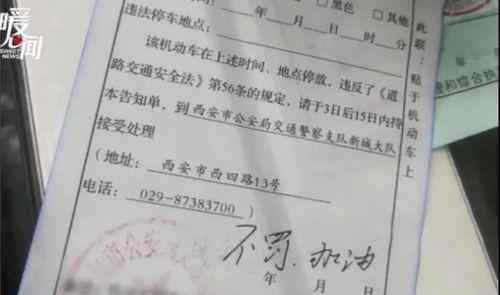 暖心闻
SWEET NEWS
年 月 □黑色 □其他
违法停车地点：___年___月___日___时___分
该机动车在上述时间、地点停放，违反了《道
路交通安全法》第56条的规定，请于3日后15日内持
本告知单，到西安市公安局交通警察支队新城大队
接受处理
（地址：西安市西四路13号
电话：029-87383700）
不罚.加油
年 月 日
此联：贴于机动车上